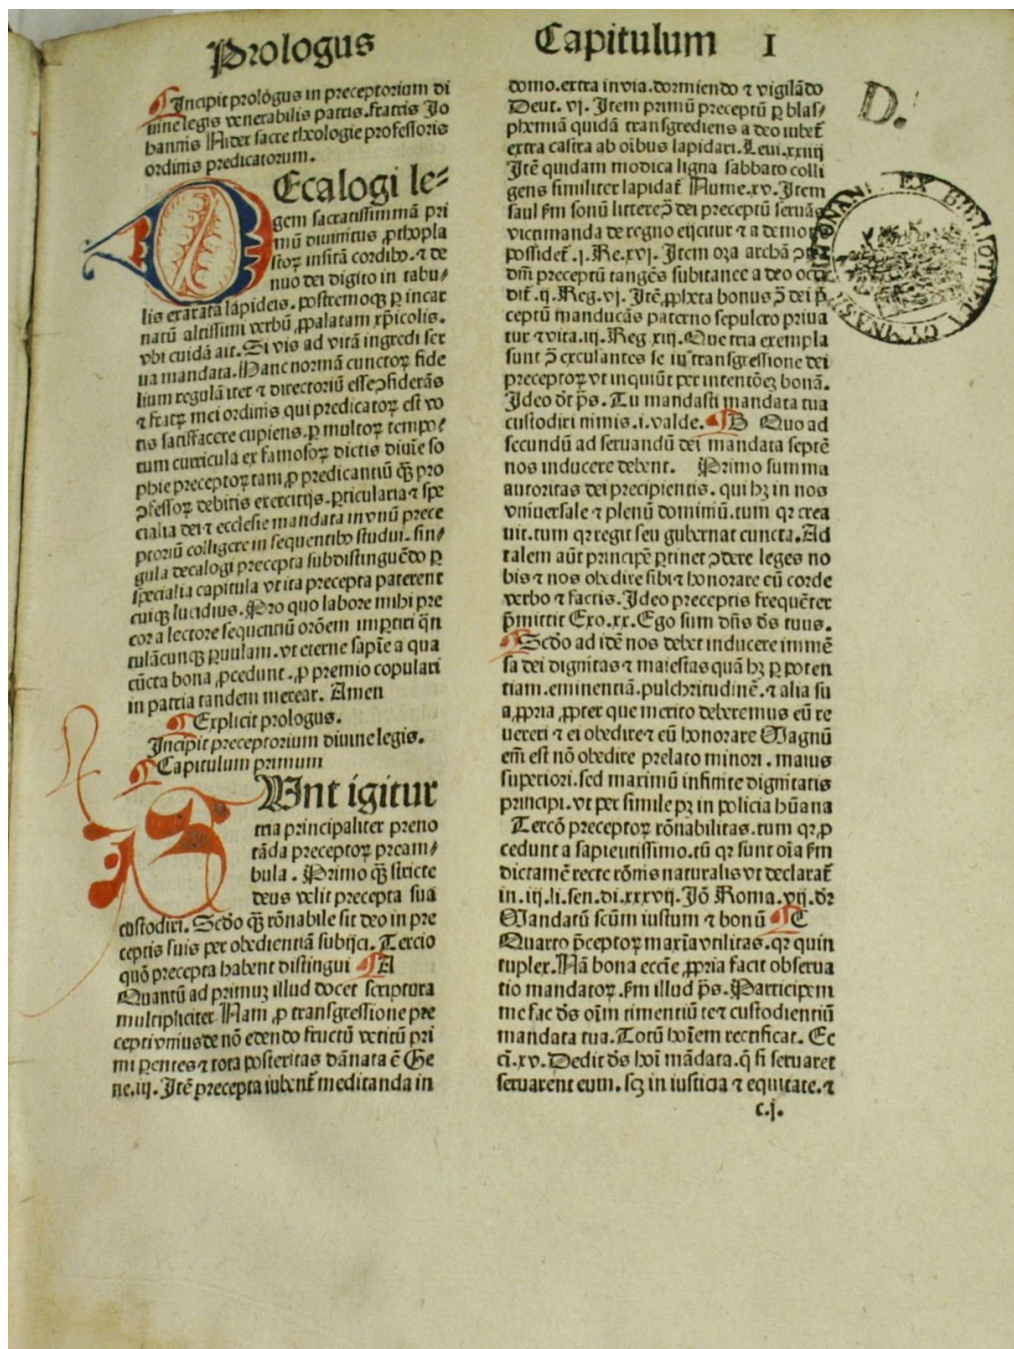 Prologus
Incipit prologus in preceptorium di
uine legis venerabilis patris. fratris Jo
hannis Nider sacre theologie professoris
ordinis predicatorum.
DEcalogi le⸗
gem sacratissimmā pri
mū diuinitus ꝓthopla
stoꝝ insitā cordibꝰ. ⁊ de
nuo dei digito in tabu⸗
lis exarata lapideis. postremoqꝫ ꝑ incar
natū altissimi verbū, ꝓpalatam xp̄icolis.
vbi cuidā ait. Si vis ad vitā ingredi ser
ua mandata. Hanc normā cunctoꝝ fide
lium regulā iter ⁊ directoriū esse ꝯsiderās
⁊ fratꝝ mei ordinis qui predicatoꝝ est vo
tis satisfacere cupiens. ꝑ multoꝝ tempo⸗
rum curricula ex famosoꝝ dictis diuie so
phie preceptoꝝ tam, ꝓ predicantiū qꝫ pro
ꝯfessoꝝ debitis exercitijs. ꝑticularia ⁊ spe
cialia dei ⁊ ecclesie mandata in vnū prece
ptoriū colligere in sequentibꝰ studui. sin⸗
gula decalogi precepta subdistinguēdo ꝑ
specialia capitula vt ita precepta paterent
cuiqꝫ lucidius. Pro quo labore mihi pre
cor a lectore sequentiū orōem impartiri qn̄
tulācunqꝫ ꝑuulam. vt eterne sapīe a qua
cūcta bona ꝓcedunt. ꝓ premio copulari
in patria tandem merear. Amen
Explicit prologus.
Incipit preceptorium diuine legis.
Capitulum primum
SUnt igitur
tria principaliter preno
tāda preceptoꝝ pream⸗
bula. Primo qꝫ stricte
deus velit precepta sua
custodiri. Scd̄o qꝫ rōnabile sit deo in pre
ceptis suis per obedientiā subijci. Tercio
quō precepta habent distingui A
Quantū ad primuꝫ illud docet scriptura
multipliciter Nam, ꝓ transgressione pre
cepti vnius de nō edendo fructū vetitū pri
mi ꝑentes ⁊ tota posteritas dānata ē Ge
ne. iij. Itē precepta iubent̄ meditanda in
Capitulum I
domo. extra in via. dormiendo ⁊ vigilādo
Deut. vj. Item primū preceptū ꝑ blas⸗
phemiā quidā transgrediens a deo iubet̄
extra castra ab oībus lapidari. Leui. xxiiij
Itē quidam modica ligna sabbato colli
gens similiter lapidat̄ Nume. xv. Item
saul s̄m sonū littere ꝯ̄ dei preceptū seruās
victimanda de regno eijcitur ⁊ a demone
possidet̄. j. Re. xvj. Item oza archā
dn̄i preceptū tangēs subitance a deo occi
dit̄. ij. Reg. vj. Itē, ꝓpheta bonus ꝯ̄ dei p̄
ceptū manducās paterno sepulcro priua
tur ⁊ vita. iij. Reg xiij. Que tria exempla
sunt ꝯ̄ exculantes se iu transgressione dei
preceptoꝝ vt inquiūt per intentōeꝫ bonā.
Ideo dr̄ ps̄. Tu mandasti mandata tua
custodiri nimis. i. valde. B Quo ad
secundū ad seruandū dei mandata septē
nos inducere debent. Primo summa
autoritas dei precipientis. qui hꝫ in nos
vniuersale ⁊ plenū dominiū. tum qꝛ crea
uit. tum qꝛ regit seu gubernat cuncta. Ad
talem aūt principē ꝑtinet ꝯdere leges no
bis ⁊ nos obedire sibi ⁊ honorare eū corde
verbo ⁊ factis. Ideo preceptis frequēter
p̄mittit Exo. xx. Ego sum dn̄s ds̄ tuus.
Scd̄o ad idē nos debet inducere immē
sa dei dignitas ⁊ maiestas quā hꝫ ꝑ poten
tiam. eminentiā. pulchritudinē. ⁊ alia su
a, ꝓpria, ꝓpter que merito deberemus eū re
uereri ⁊ ei obedire ⁊ eū honorare Magnū
em̄ est nō obedire prelato minori. maius
superiori. sed maximū infinite dignitatis
principi. vt per simile pꝫ in policia hūana
Tercō preceptoꝝ rōnabilitas. tum qꝛ, ꝓ
cedunt a sapieutissimo. tū qꝛ sunt oīa s̄m
dictamē recte rōnis naturalis vt declarat̄
in. iij. li. sen. di. xxxvij. Jō Roma. vij. dꝛ
Mandatū scūm iustum ⁊ bonū C
Quarto p̄ceptoꝝ maxīa vtilitas. qꝛ quin
tuplex. Nā bona eccīe, ꝓpria facit obserua
tio mandatoꝝ. s̄m illud ps̄. Participem
me fac ds̄ oīm timentiū te ⁊ custodientiū
mandata tua. Totū hoīem rectificat. Ec
ci. xv. Dedit ds̄ hoī māndata. q̄ si seruaret
seruarent eum. scꝫ in iusticia ⁊ equitate. ⁊
c. j.
D.
EX BIBLIOTHECA GYMNASII